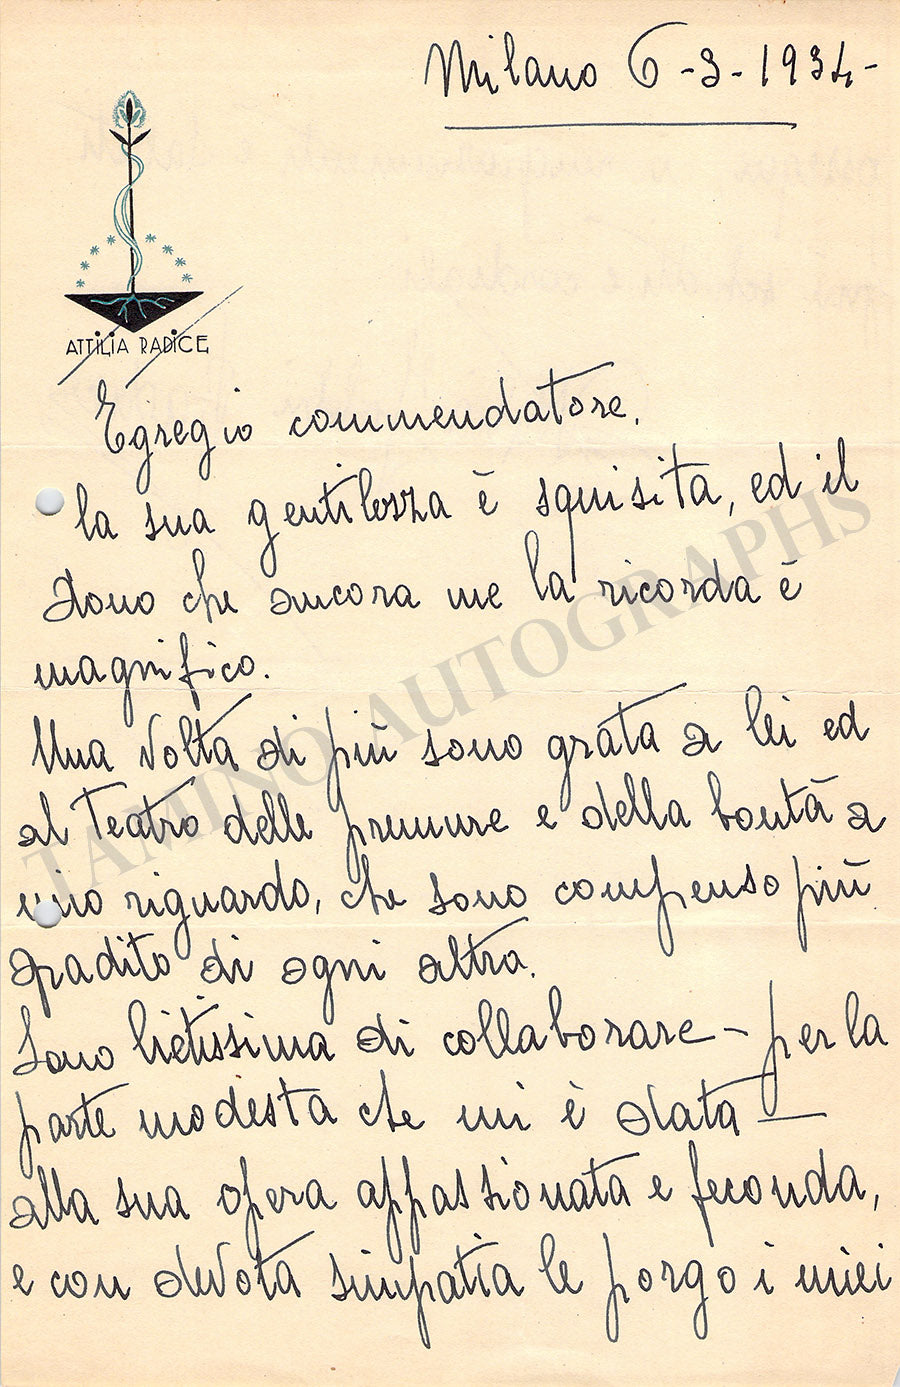 Milano 6-3-1934-
ATTILIA RADICE
Egregio commendatore.
la sua gentilezza è squisita, ed il
dono che ancora me la ricorda è
magnifico.
Una volta di più sono grata a lei ed
al Teatro delle premure e della bontà a
mio riguardo, che sono compenso più
gradito di ogni altro.
Sono lietissima di collaborare - per la
parte modesta che mi è data -
alla sua opera appassionata e feconda,
e con devota simpatia le porgo i miei
TAMINO AUTOGRAPHS